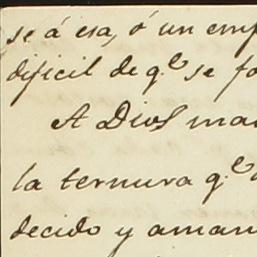 se á esa, ó un emp
dificil de q.e se fo
A Dios ma
la ternura q.e
decido y aman